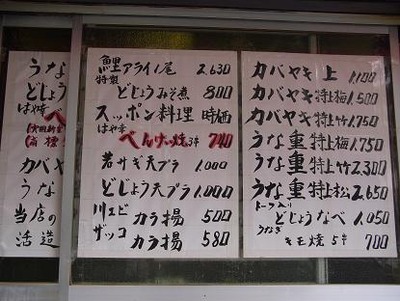 うな
どじょう
はや幸
べ
カバヤキ
うな
当店の
活造
鯉アライ1尾 2,630
特製
どじょうみそ煮 800
スッポン料理 時価
はや幸
べんけい焼3本 740
若サギ天プラ 1,000
どじょう天プラ 1,000
川エビ カラ揚 500
ザッコ カラ揚 580
カバヤキ上 1,100
カバヤキ特上梅 1,500
カバヤキ特上竹 1,750
うな重特上梅 1,750
うな重特上竹 2,300
うな重特上松 2,650
トーフ入り
どじょうなべ 1,050
うなぎ
キモ焼5本 700